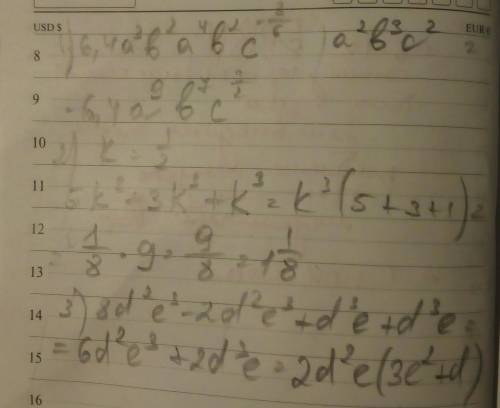 USD $ EUR €
8 1) 6,4a³b²a⁴b²c a²b³c²
9 -6,4a⁹b⁷c
10 2) k = 1/2
11 5k³+3k³+k³=k³(5+3+1)=
12 1/8 · 9 = 9/8 = 1 1/8
13
14 3) 8d²e³-2d²e³+d³e+d³e=
15 =6d²e³+2d³e=2d²e(3e²+d)
16